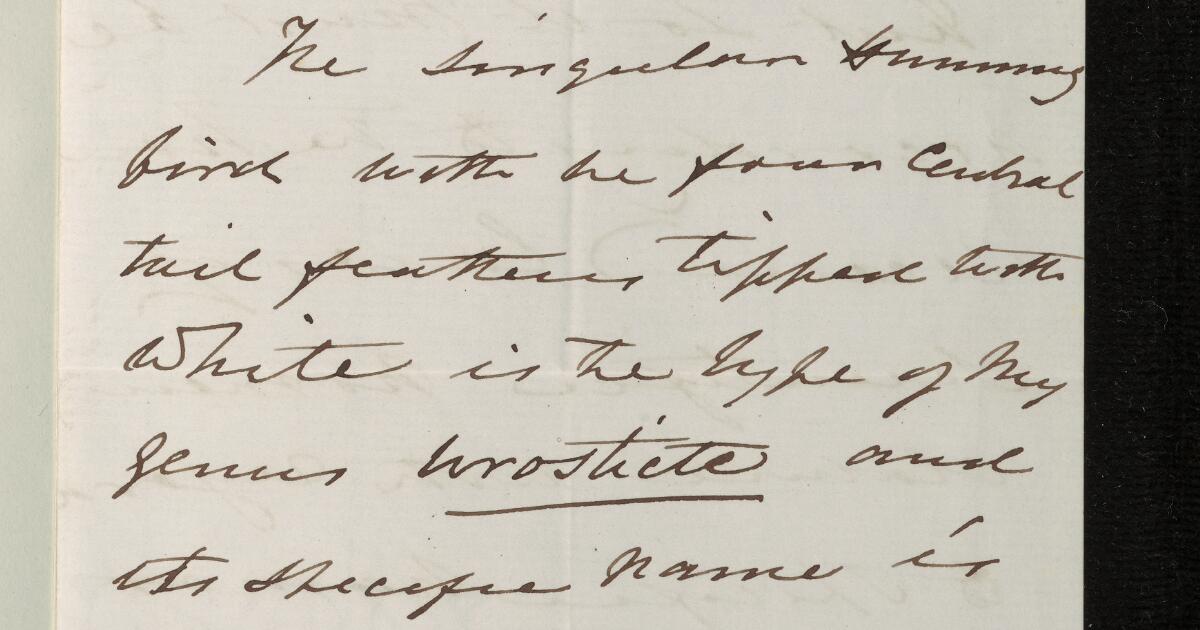 The singular Humming
bird with the four central
tail feathers tipped with
White is the type of my
genus Urosticte and
its specific name is